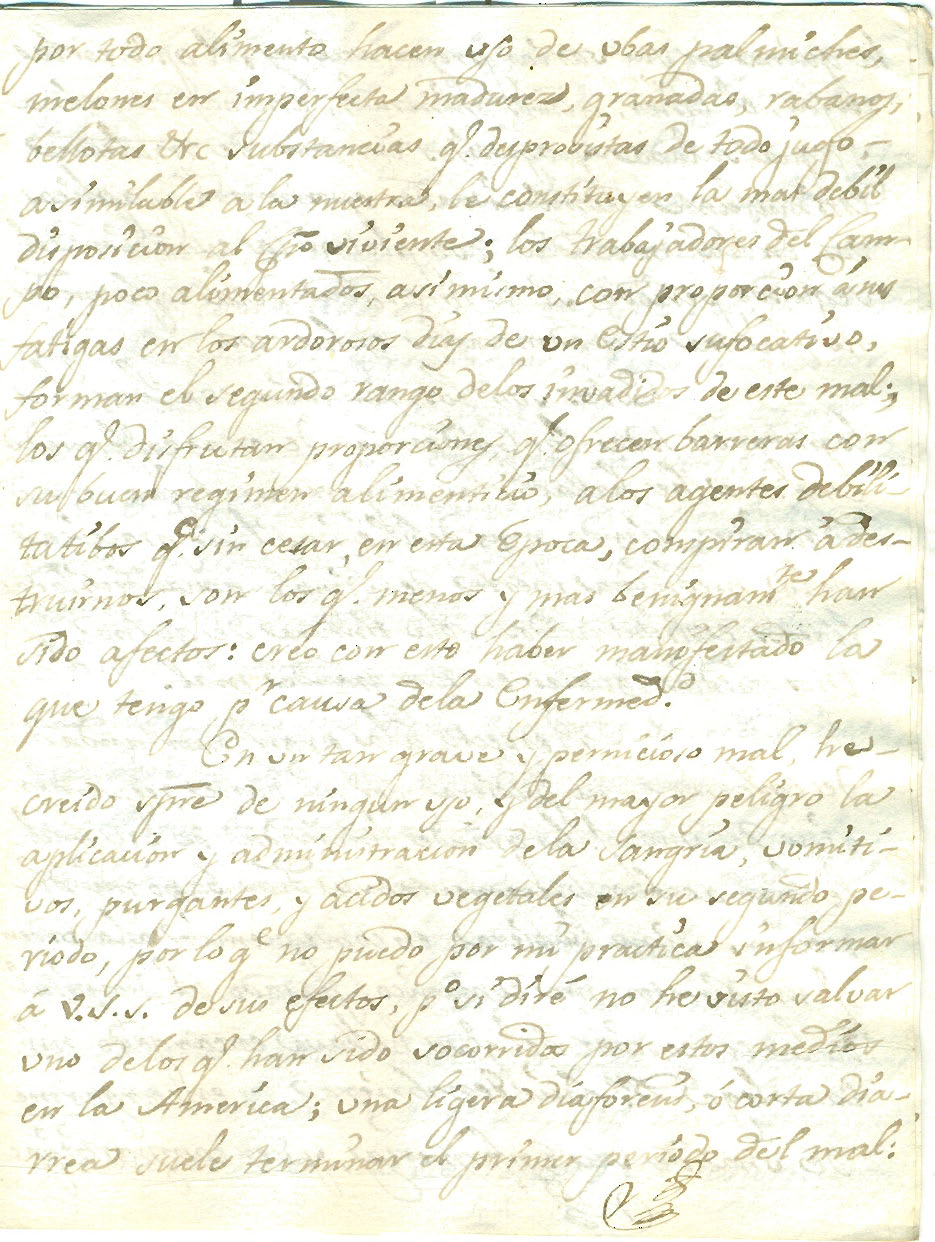 por todo alimento hacen uso de ubas palmiches,
melones en imperfecta madurez, granadas, rabanos,
bellotas &c substancias q.e desprovistas de todo jugo-
asimilable a la nuestra, le constituyen la mas debil
disposicion al viviente; los trabajadores del Cam-
po, poco alimentados, asi mismo, con proporcion á sus
fatigas en los ardorosos dias de un Estio sufocativo,
forman el segundo rango delos invadidos de este mal;
los q.e disfrutan proporciones, q.e ofrecen barreras con
su buen regimen alimenticio, alos agentes debili-
tatibos q.e sin cesar, en esta Epoca, conspiran á des-
truirnos, son los q.e menos y mas benignam.te han
sido afectos: creo con esto haber manifestado la
que tengo p.r causa dela Enfermed.d
En un tan grave y pernicioso mal, he-
creido spre de ningun uso, y del mayor peligro la
aplicacion y administracion dela Sangria, vomiti-
vos, purgantes, y acidos vegetales en su segundo pe-
riodo, por lo q.e no puedo por mi practica informar
á V.S.S. de sus efectos, p.o si diré no he visto salvar
uno delos q.e han sido socorridos por estos medios
en la America; una ligera diaforesis, ó corta dia-
rrea suele terminar el primer periodo del mal: